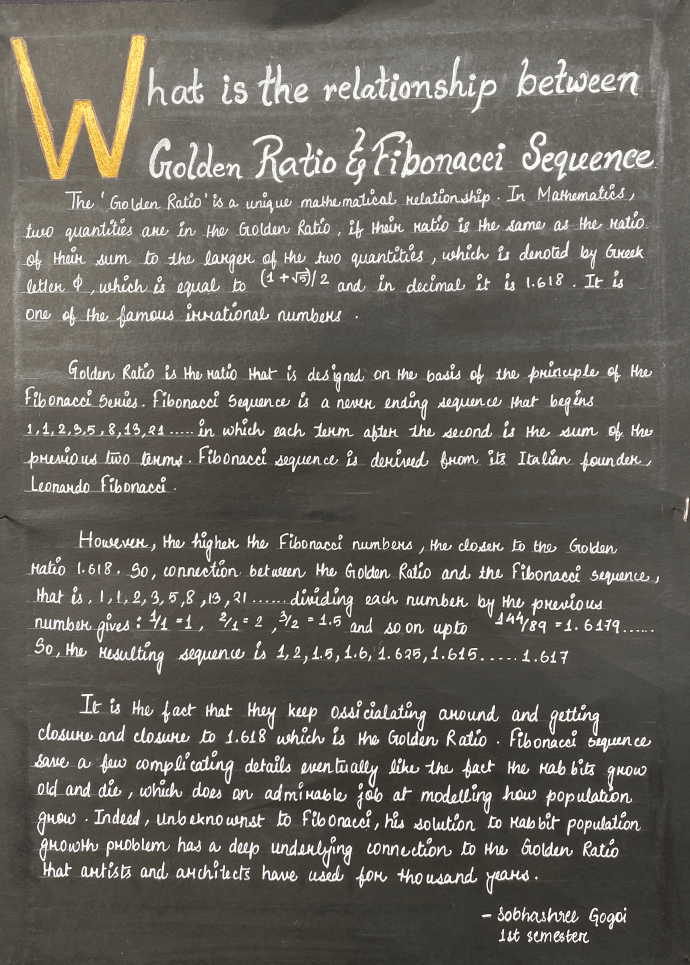 What is the relationship between
Golden Ratio & Fibonacci Sequence
The 'Golden Ratio' is a unique mathematical relationship. In Mathematics,
two quantities are in the Golden Ratio, if their ratio is the same as the ratio
of their sum to the larger of the two quantities, which is denoted by Greek
letter Φ, which is equal to (1+√5)/2 and in decimal it is 1.618. It is
one of the famous irrational numbers.
Golden Ratio is the ratio that is designed on the basis of the principle of the
Fibonacci Series. Fibonacci Sequence is a never ending sequence that begins
1,1,2,3,5,8,13,21..... in which each term after the second is the sum of the
previous two terms. Fibonacci sequence is derived from its Italian founder,
Leonardo Fibonacci.
However, the higher the Fibonacci numbers, the closer to the Golden
ratio 1.618. So, connection between the Golden Ratio and the Fibonacci sequence,
that is, 1,1,2,3,5,8,13,21...... dividing each number by the previous
number gives: 1/1=1, 2/1=2, 3/2=1.5 and so on upto 144/89=1.6179......
So, the resulting sequence is 1,2,1.5,1.6,1.625,1.615.....1.617
It is the fact that they keep ossicialating around and getting
closure and closure to 1.618 which is the Golden Ratio. Fibonacci sequence
save a few complicating details eventually like the fact the rabbits grow
old and die, which does an admirable job at modelling how population
grow. Indeed, unbeknownst to Fibonacci, his solution to rabbit population
growth problem has a deep underlying connection to the Golden Ratio
that artists and architects have used for thousand years.
- Sobhashree Gogoi
1st semester